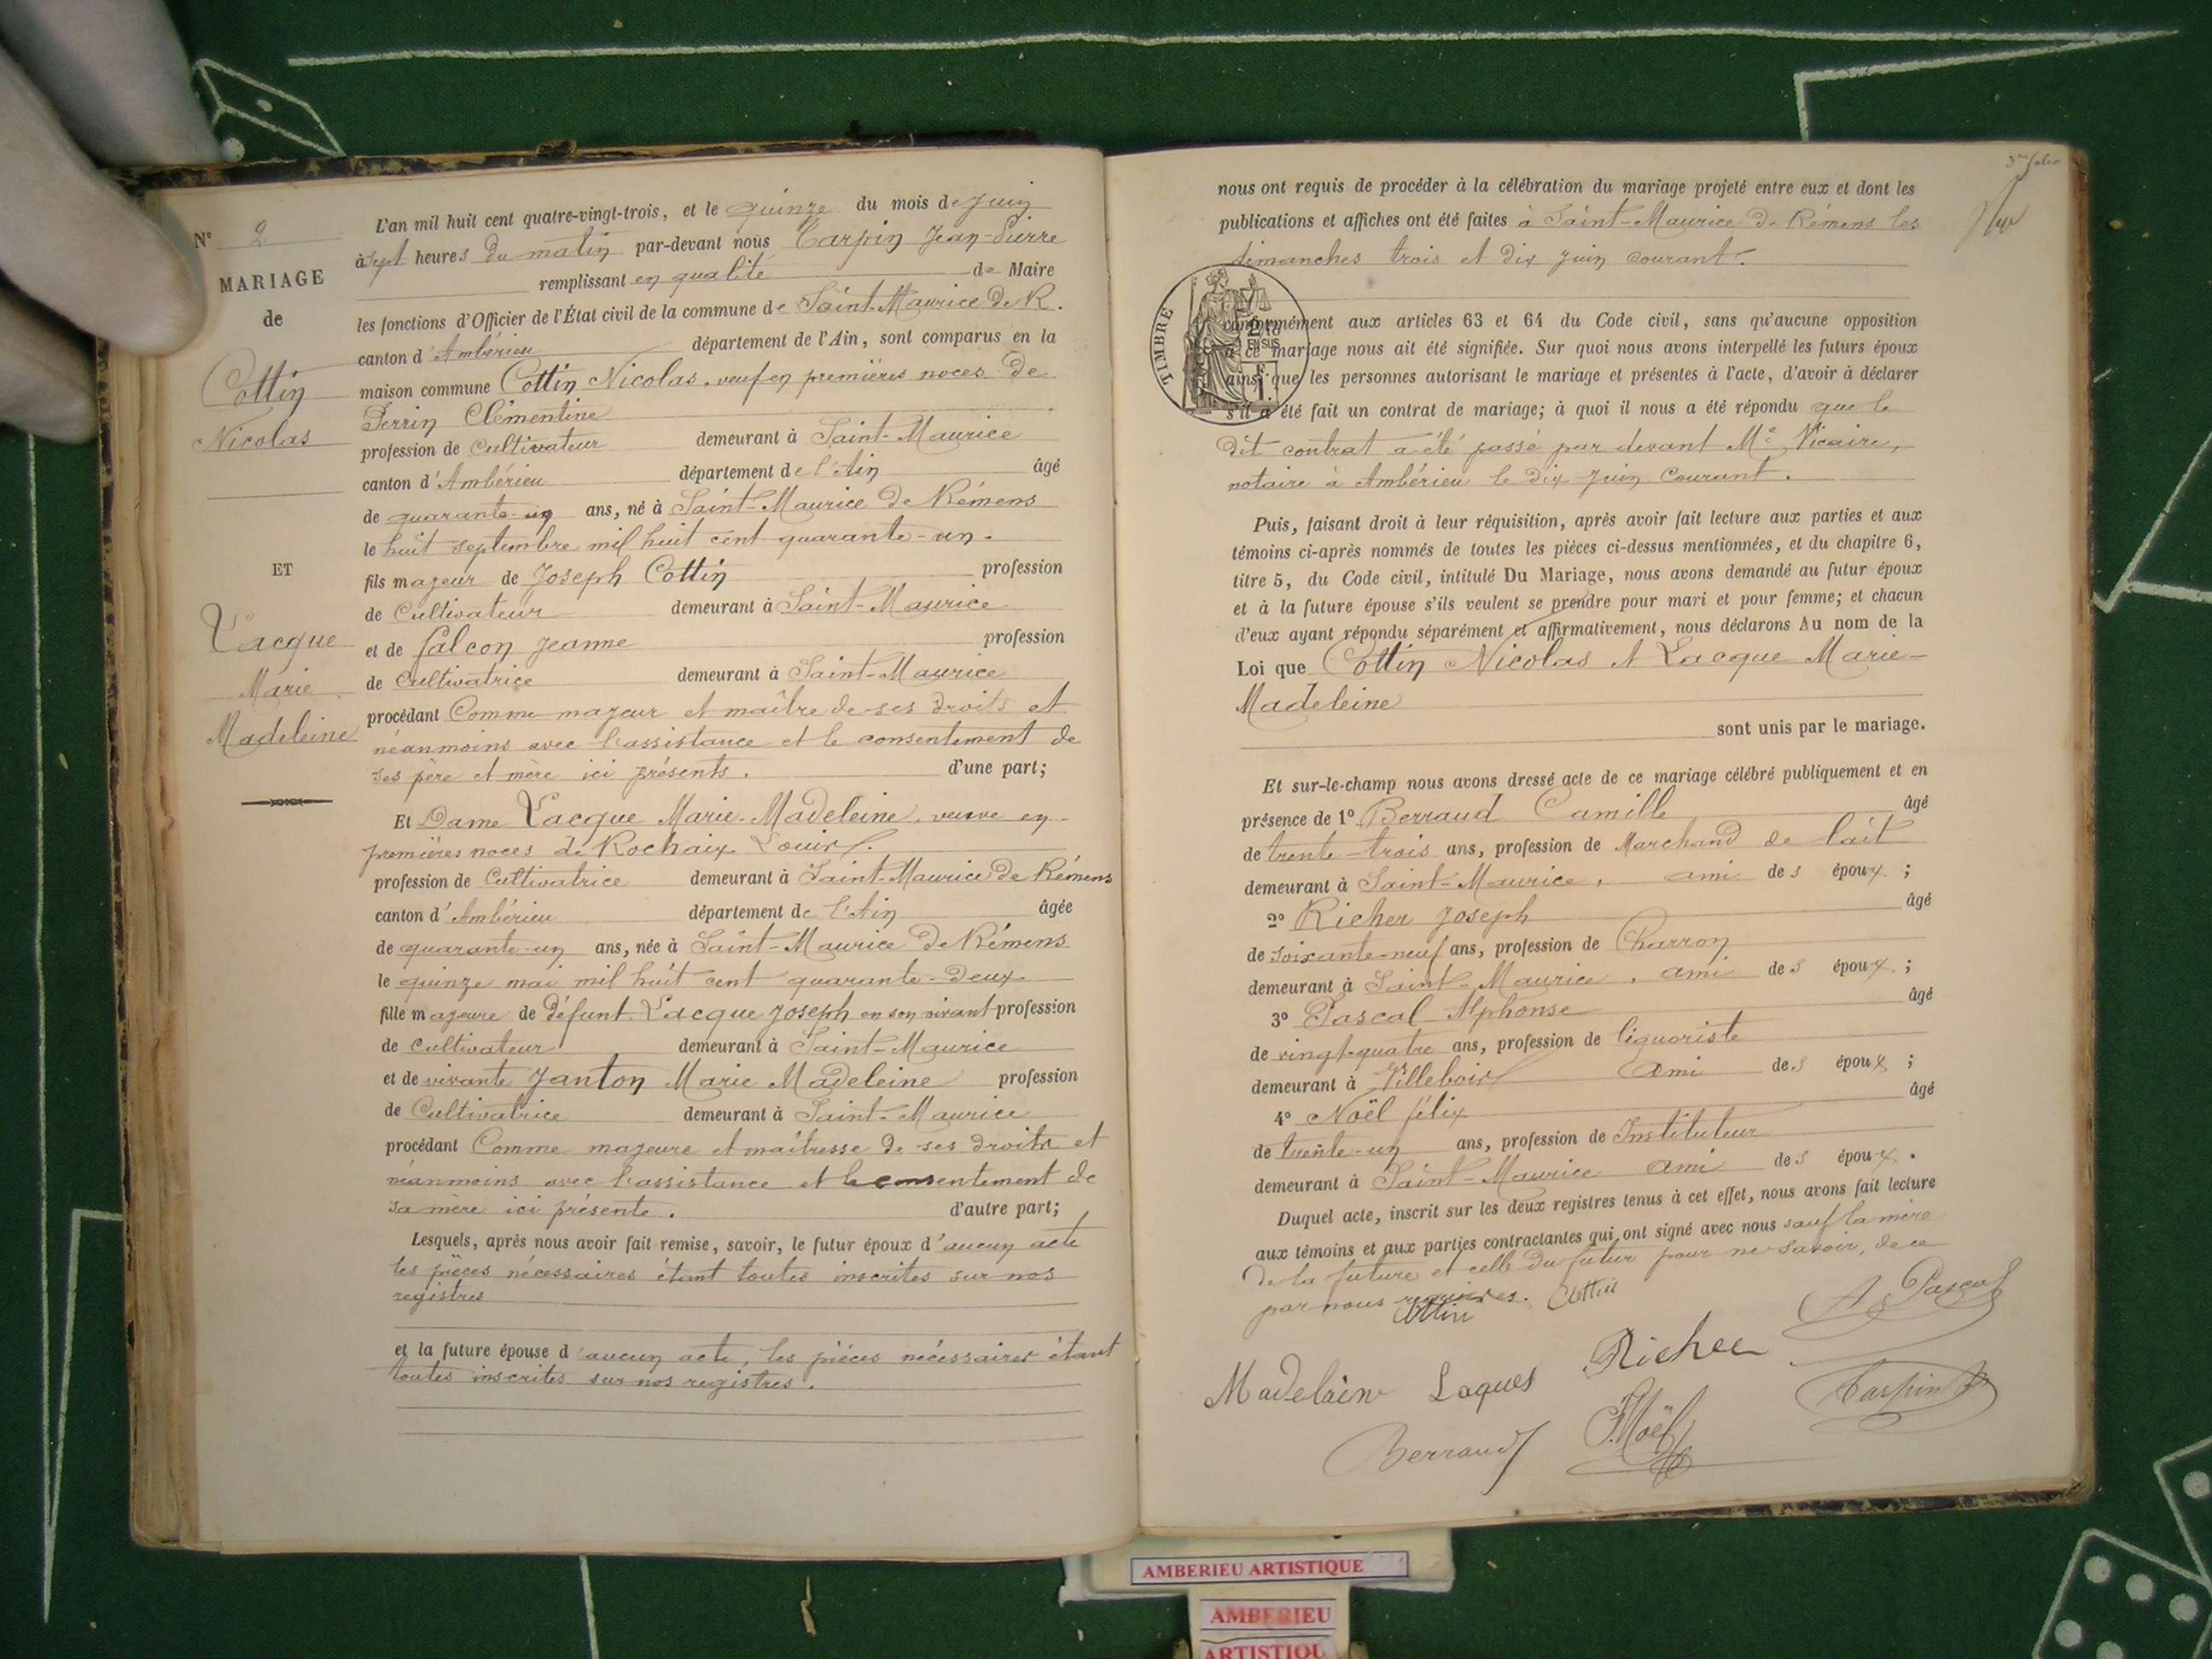 N° 2
MARIAGE
de
Cottin
Nicolas
ET
Lacque
Marie
Madeleine
L'an mil huit cent quatre-vingt-trois, et le quinze du mois de Juin
à sept heures du matin par-devant nous Carpin Jean-Pierre
remplissant en qualité de Maire
les fonctions d'Officier de l'État civil de la commune de Saint-Maurice de R.
canton d'Ambérieu département de l'Ain, sont comparus en la
maison commune Cottin Nicolas, veuf en premières noces de
Perrin Clémentine
profession de Cultivateur demeurant à Saint-Maurice
canton d'Ambérieu département de l'Ain âgé
de quarante-un ans, né à Saint-Maurice de Rémens
le huit septembre mil huit cent quarante-un.
fils majeur de Joseph Cottin profession
de Cultivateur demeurant à Saint-Maurice
et de falcon Jeanne profession
de Cultivatrice demeurant à Saint-Maurice
procédant Comme majeur et maître de ses droits et
néanmoins avec l'assistance et le consentement de
ses père et mère ici présents. d'une part;
Et Dame Lacque Marie-Madeleine, veuve en
premières noces de Rochaix Louis.
profession de Cultivatrice demeurant à Saint-Maurice de Rémens
canton d'Ambérieu département de l'Ain âgée
de quarante-un ans, née à Saint-Maurice de Rémens
le quinze mai mil huit cent quarante-deux
fille majeure de défunt Lacque Joseph en son vivant profession
de cultivateur demeurant à Saint-Maurice
et de vivante Janton Marie Madeleine profession
de Cultivatrice demeurant à Saint-Maurice
procédant Comme majeure et maîtresse de ses droits et
néanmoins avec l'assistance et le consentement de
sa mère ici présente. d'autre part;
Lesquels, après nous avoir fait remise, savoir, le futur époux d'aucun acte
les pièces nécessaires étant toutes inscrites sur nos
registres
et la future épouse d'aucun acte, les pièces nécessaires étant
toutes inscrites sur nos registres.
3me folio
nous ont requis de procéder à la célébration du mariage projeté entre eux et dont les
publications et affiches ont été faites à Saint-Maurice de Rémens les
dimanches trois et dix juin courant.
TIMBRE
2/10 EN SUS
conformément aux articles 63 et 64 du Code civil, sans qu'aucune opposition
à ce mariage nous ait été signifiée. Sur quoi nous avons interpellé les futurs époux
ainsi que les personnes autorisant le mariage et présentes à l'acte, d'avoir à déclarer
s'il a été fait un contrat de mariage; à quoi il nous a été répondu que le
dit contrat a été passé par devant Me Vicaire,
notaire à Ambérieu le dix Juin Courant.
Puis, faisant droit à leur réquisition, après avoir fait lecture aux parties et aux
témoins ci-après nommés de toutes les pièces ci-dessus mentionnées, et du chapitre 6,
titre 5, du Code civil, intitulé Du Mariage, nous avons demandé au futur époux
et à la future épouse s'ils veulent se prendre pour mari et pour femme; et chacun
d'eux ayant répondu séparément et affirmativement, nous déclarons Au nom de la
Loi que Cottin Nicolas et Lacque Marie-
Madeleine
sont unis par le mariage.
Et sur-le-champ nous avons dressé acte de ce mariage célébré publiquement et en
présence de 1° Berraud Camille âgé
de trente-trois ans, profession de Marchand de lait
demeurant à Saint-Maurice, ami des époux;
2° Richer Joseph âgé
de soixante-neuf ans, profession de Charron
demeurant à Saint-Maurice, ami des époux;
3° Pascal Alphonse âgé
de vingt-quatre ans, profession de liquoriste
demeurant à Villebois ami des époux;
4° Noël félix âgé
de trente-un ans, profession de Instituteur
demeurant à Saint-Maurice ami des époux.
Duquel acte, inscrit sur les deux registres tenus à cet effet, nous avons fait lecture
aux témoins et aux parties contractantes qui ont signé avec nous sauf la mère
de la future et celle du futur pour ne savoir, de ce
par nous requises. Cottin
Cottin
A Pascal
Madelaine Laques Richer
Carpin
Berraud F. Noël
AMBERIEU ARTISTIQUE
AMBERIEU
ARTISTIQU